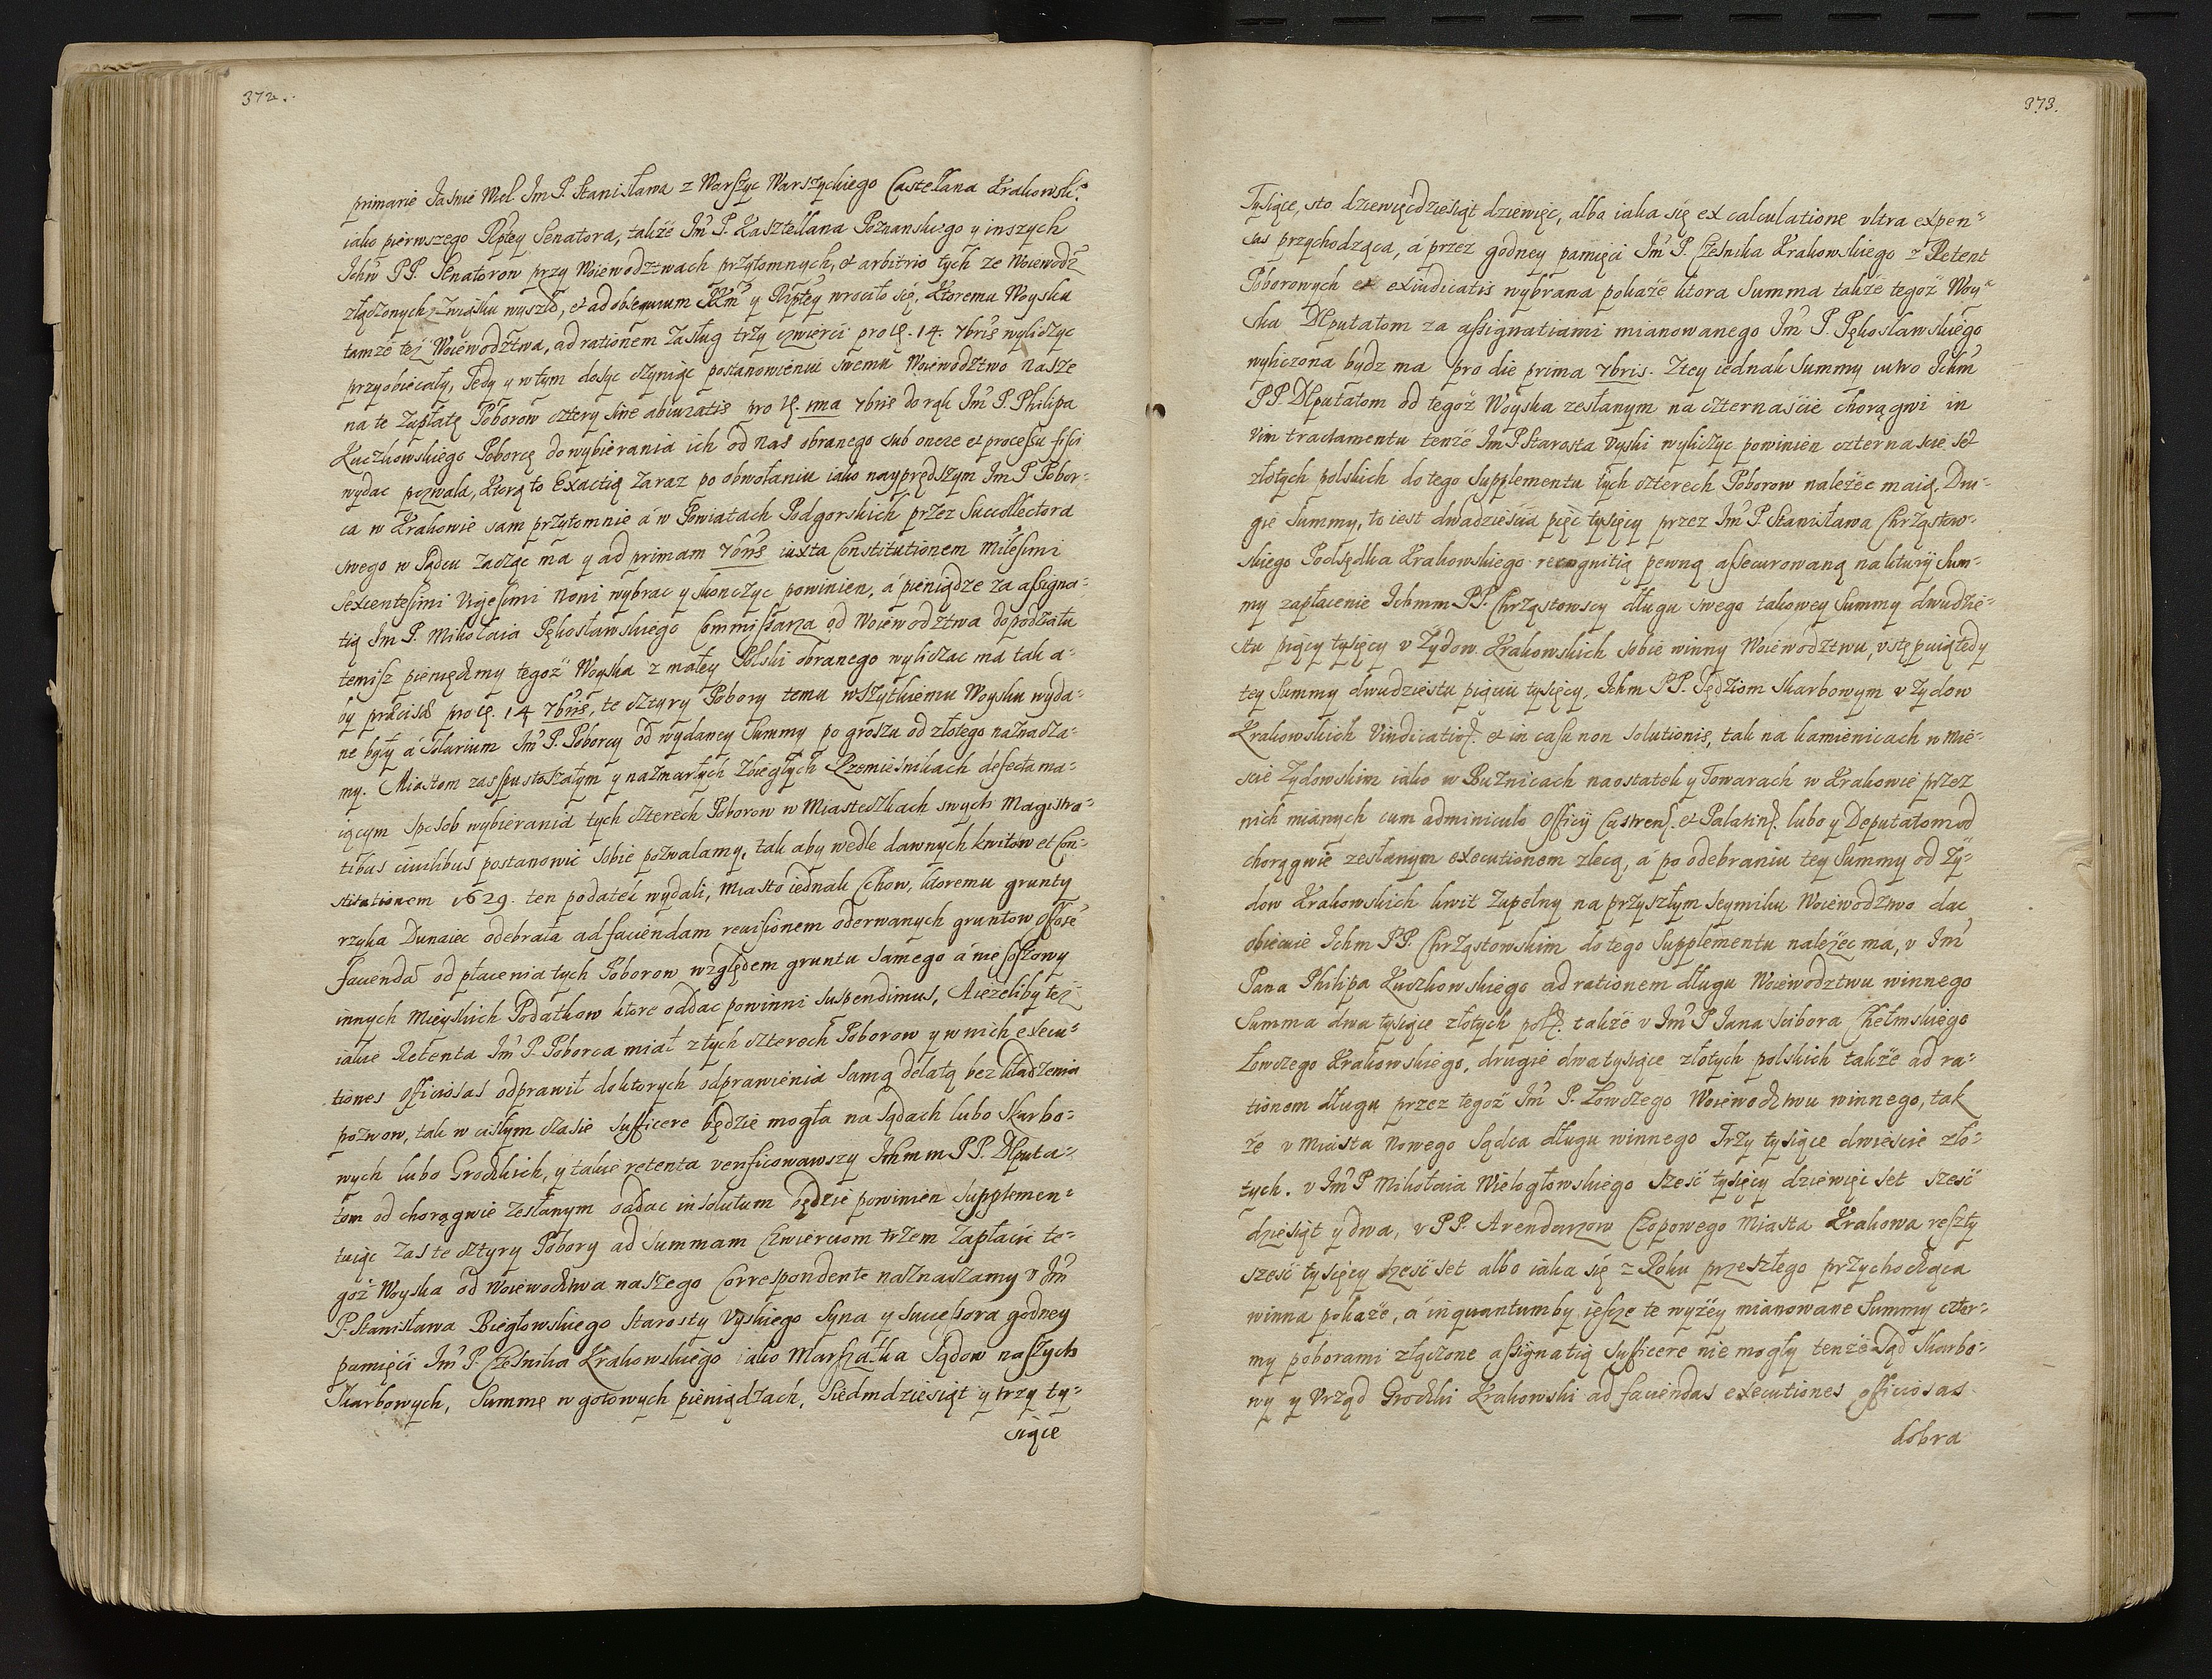 372.
primarie Jasnie Wel Jm P. Stanisława z Warszyc Warszyckiego Castellana Krakowsk:º
iako pierwszego Rptey Senatora, także Jm̃ P. Kasztellana Poznanskiego y inszych
Ichm̃ PP. Senatorow przy Woiewodztwach przytomnych, et arbitrio tych ze Woiewodz
złączonych związku wyszło, et ad obsequium JKm̃ y Rptey wrociło się, Ktoremu Woysku
tamże też Woiewodztwa, ad rationem zasług trzy czwierci pro 14. 7bris wyliczyc
przyobiecały, Tedy y w tym dosyc czyniąc postanowieniu swemu Woiewodztwo nasze
na tę zapłatę Poborow cztery sine abiuratis pro 1ma 7bris do rąk Jm̃ P. Philipa
Kuczkowskiego Poborcę do wybierania ich od nas obranego sub onere et processu fisci
wydac pozwala, Ktorą to Exactią zaraz po obwołaniu iako nayprędszym Jm P Pobor=
ca w Krakowie sam przytomnie á w Powiatach Podgorskich przez Succollectora
swego w Sączu zacząc ma y ad primam 7bris iuxta Constitutionem Milesimi
Sexcentesimi Vigesimi Noni wybrac y skonczyc powinien, á pieniądze za assigna=
tią Jm P. Mikołaia Pękosławskiego Commissarza od Woiewodztwa do podziału
temisz pieniędzmy tegoż Woyska z małey Polski obranego wyliczac ma tak a=
by præcise pro 14 7bris, te cztyry Pobory temu wszytkiemu Woysku wyda=
ne były á Solarium Jm̃ P. Poborcy od wydaney Summy po groszu od złotego naznacza=
my. Miastom zas spustoszałym y na zmarłych zbiegłych Rzemiesnikach defecta ma=
iącym sposob wybierania tych czterech Poborow w Miasteczkach swych Magistra=
tibus ciuilibus postanowic sobie pozwalamy, tak aby wedle dawnych kwitow et Con=
stitutionem 1629. ten podatek wydali, Miasto iednak Czchow, ktoremu grunty
rzyka Dunaiec odebrała ad faciendam reuisionem oderwanych gruntow
faciendã od płacenia tych Poborow względem gruntu samego á nie
innych Mieyskich Podatkow ktore oddac powinni suspendimus, A ieżeliby też
iakie Retenta Jm̃ P. Poborca miał z tych czterech Poborow y w nich execu=
tiones officiosas odprawił do ktorych odprawienia samą delatą bez kładzenia
pozwow, tak w cisłym czasie sufficere będzie mogła na Sądach lubo Skarbo=
wych lubo Grodzkich, y takie retenta verificowawszy Ichmm PP. Deputa=
tom od chorągwie zesłanym oddac in solutum będzie powinien supplemen=
tuiąc zas te cztyry Pobory ad Summam Czwierciom trzem zapłacic te=
goż Woyska od Woiewodztwa naszego Correspondente naznaczamy v Jm̃
P. Stanisława Biegłowskiego Starosty Vyskiego Syna y Successora godney
pamięci Jm̃ P. Czesnika Krakowskiego iako Marszałka Sądow naszych
Skarbowych, Summę w gotowych pieniądzach, Siedmdziesiąt y trzy ty=
siące
373.
Tysiące, sto dziewięcdziesiąt dziewięc, albo iaka się ex calculatione vltra expen=
sas przychodząca, á przez godney pamięci Jm̃ P. Czesnika Krakowskiego z Retent
Poborowych et exiudicatis wybrana pokaże ktora Summa także tegoż Woy=
ska Deputatom za assignatiami mianowanego Jm̃ P. Pękosławskiego
wyliczona bydz ma pro die prima 7bris. Z tey iednak Summy Ichm̃
PP Deputatom od tegoż Woyska zesłanym na czternascie chorągwi in
vim tractamentu tenże Jm P. Starosta Vyski wyliczyc powinien czternascie set
złotych polskich do tego Supplementu tych czterech Poborow należec maią. Dru=
gie Summy, to iest dwadziescia pięc tysięcy przez Jm̃ P. Stanisława Chrząstow=
skiego Podsędka Krakowskiego recognitią pewną assecurowaną na ktury Sum=
my zapłacenie Ichmm PP. Chrząstowscy długu swego takowey Summy dwudzie=
stu pięcy tysięcy v Żydow Krakowskich sobie winny Woiewodztwu, vstępuią tedy
tey Summy dwudziestu pięciu tysięcy, Ichm PP. Sędziom skarbowym v Zydow
Krakowskich Vindicatio. et in casu non solutionis, tak na kamienicach w mie=
scie Zydowskim iako w Buznicach na ostatek y Towarach w Krakowie przez
nich mianych cum adminiculo Officij Castren. et Palatin. lubo y Deputatom od
chorągwie zesłanym executionem zlecą, a po odebraniu tey Summy od Ży=
dow Krakowskich kwit zupełny na przyszłym Seymiku Woiewodztwo dac
obiecuie Ichm PP. Chrząstowskim do tego Supplementu należec ma, v Jm̃
Pana Philipa Kuczkowskiego ad rationem długu Woiewodztwu winnego
Summa dwa tysiące złotych pol. także v Jm̃ P Jana Scibora Chełmskiego
Łowczego Krakowskiego, drugie dwa tysiące złotych polskich także ad ra=
tionem długu przez tegoż Jm̃ P. Łowczego Woiewodztwu winnego, tak
że v Miasta Nowego Sądca długu winnego Trzy tysiące dwiescie zło=
tych. v Jm̃ P Mikołaia Wielogłowskiego szesc tysięcy dziewięc set szesc
dziesiąt y dwa, v PP. Arendarzow Czopowego Miasta Krakowa reszty
szesc tysięcy szesc set albo iaka się z Roku przeszłego przychodząca
winna pokaże, á in quantum by iescze te wyżey mianowane Summy czter=
my poborami złączone assignatią sufficere nie mogły tenże Sąd Skarbo=
wy y Vrząd Grodzki Krakowski ad faciendas executiones officiosas
dobra